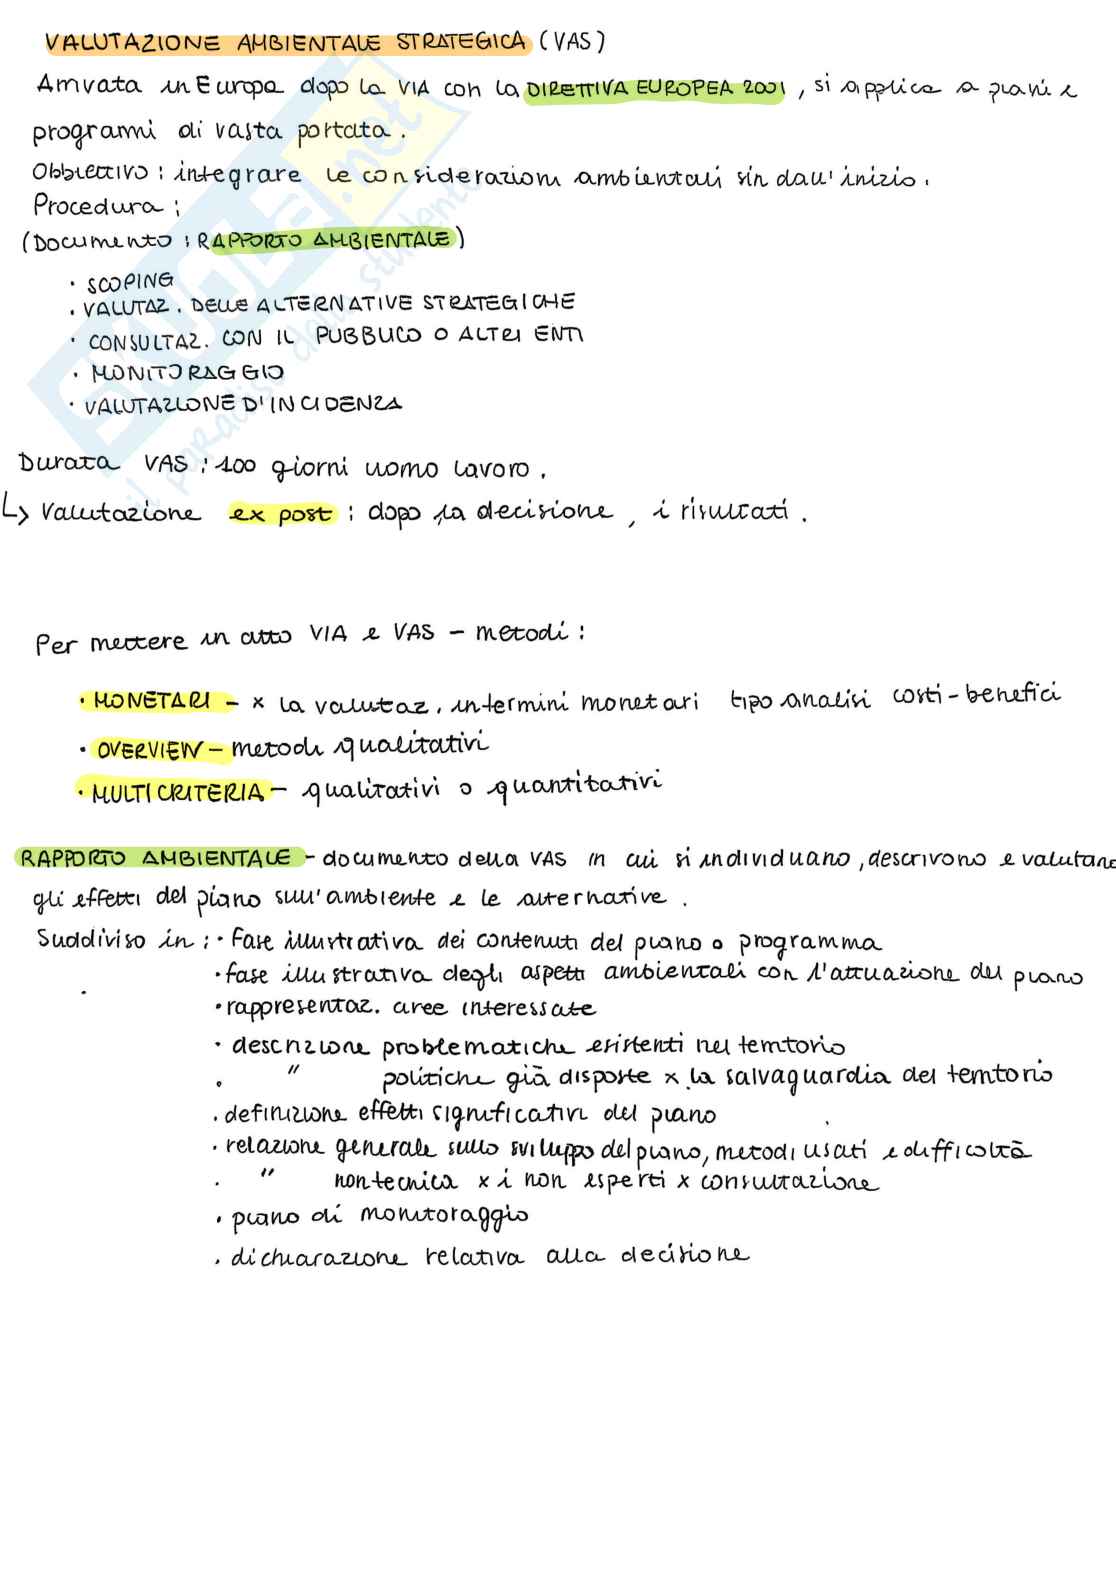 VALUTAZIONE AMBIENTALE STRATEGICA (VAS)
Arrivata in Europa dopo la VIA con la DIRETTIVA EUROPEA 2001, si applica a piani e
programmi di vasta portata.
Obbiettivo: integrare le considerazioni ambientali sin dall'inizio.
Procedura:
(Documento: RAPPORTO AMBIENTALE)
• SCOPING
• VALUTAZ. DELLE ALTERNATIVE STRATEGICHE
• CONSULTAZ. CON IL PUBBLICO O ALTRI ENTI
• MONITORAGGIO
• VALUTAZIONE D'INCIDENZA
Durata VAS: 100 giorni uomo lavoro.
↳ Valutazione ex post: dopo la decisione, i risultati.
Per mettere in atto VIA e VAS - metodi:
• MONETARI - x la valutaz. in termini monetari tipo analisi costi-benefici
• OVERVIEW - metodi qualitativi
• MULTICRITERIA - qualitativi o quantitativi
RAPPORTO AMBIENTALE - documento della VAS in cui si individuano, descrivono e valutano
gli effetti del piano sull'ambiente e le alternative.
Suddiviso in: • Fase illustrativa dei contenuti del piano o programma
• fase illustrativa degli aspetti ambientali con l'attuazione del piano
• rappresentaz. aree interessate
• descrizione problematiche esistenti nel territorio
• " politiche già disposte x la salvaguardia del territorio
• definizione effetti significativi del piano
• relazione generale sullo sviluppo del piano, metodi usati e difficoltà
• " non tecnica x i non esperti x consultazione
• piano di monitoraggio
• dichiarazione relativa alla decisione
SKUOLA.net
il paradiso dello studente